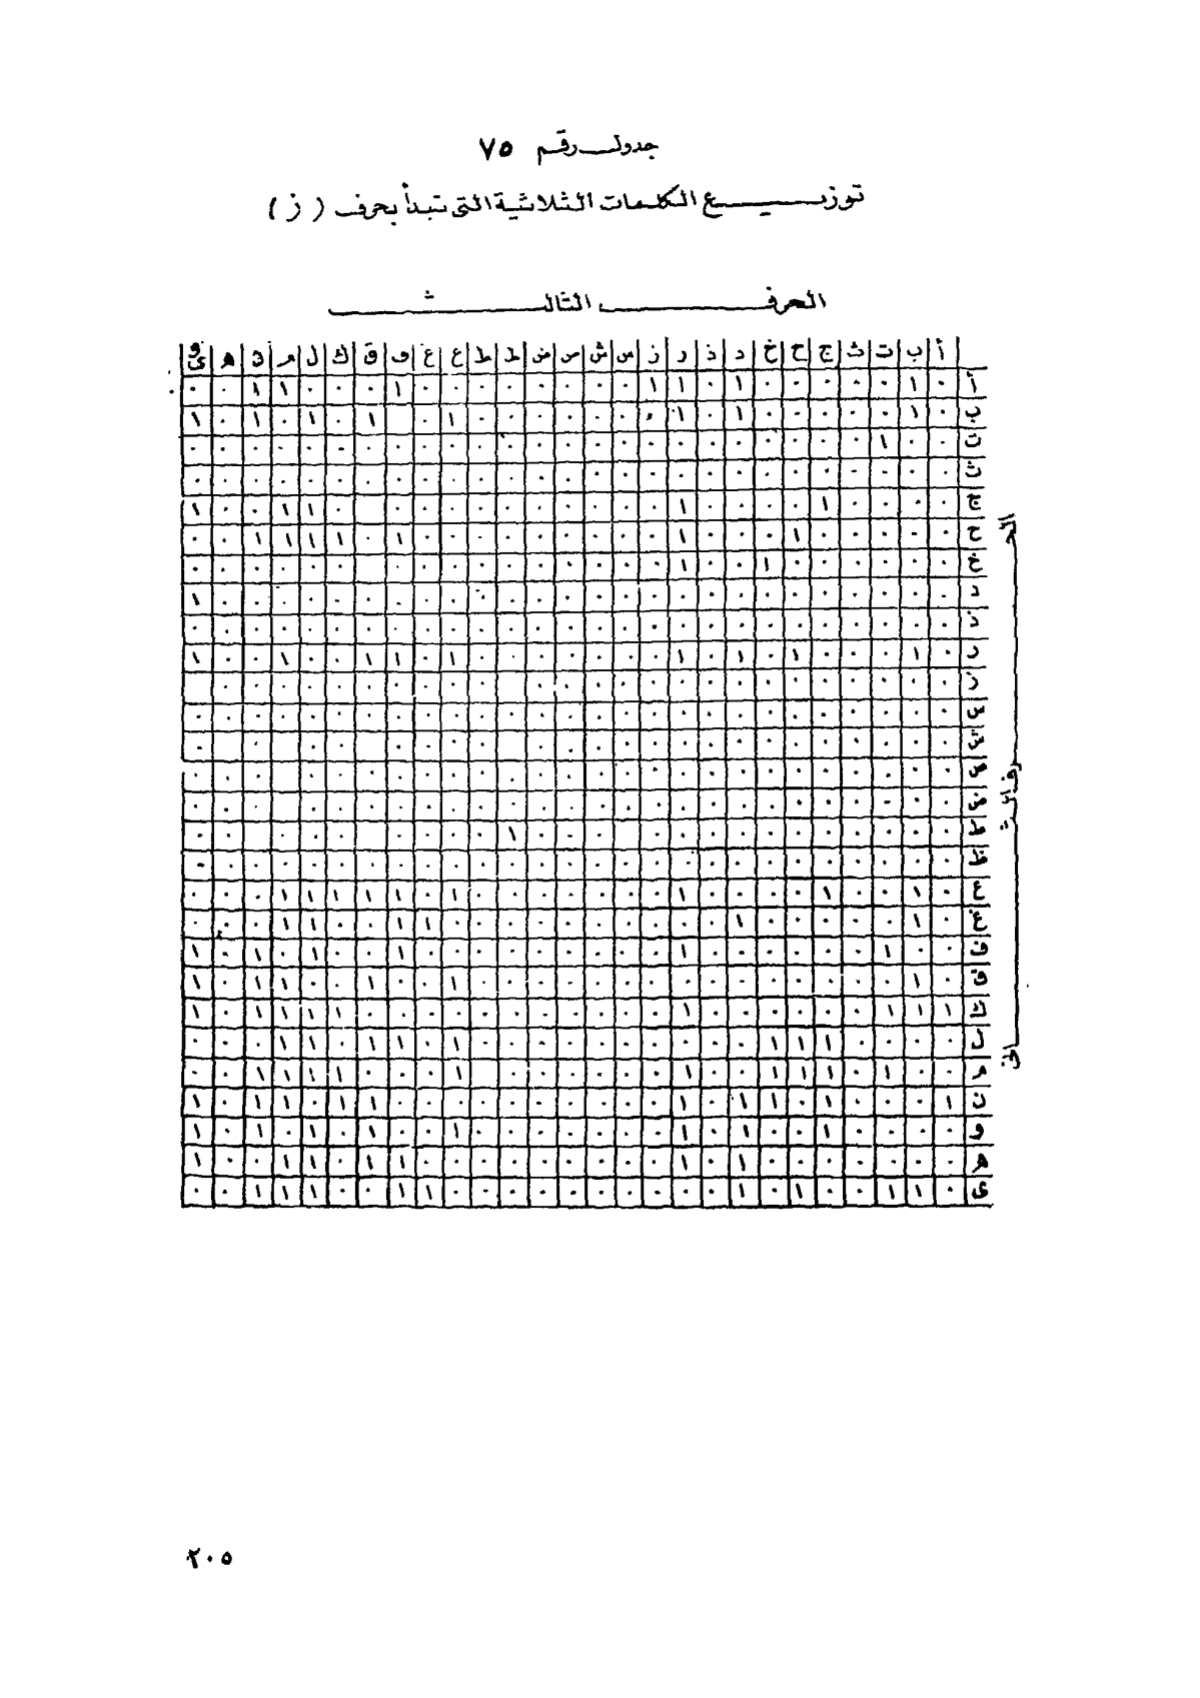 جدول رقم ٧٥
توزيع الكلمات الثلاثية التى تبدأ بحرف ( ز )
الحرف الثالث
أ ب ت ث ج ح خ د ذ ر ز س ش ص ض ط ظ ع غ ف ق ك ل م ن ه و ى
أ ٠ ١ ٠ ٠ ٠ ٠ ٠ ١ ٠ ١ ١ ٠ ٠ ٠ ٠ ٠ ٠ ٠ ٠ ١ ٠ ٠ ٠ ١ ١ ٠ ٠
ب ٠ ١ ٠ ٠ ٠ ٠ ٠ ١ ٠ ١ ٠ ٠ ٠ ٠ ٠ ٠ ٠ ١ ٠ ١ ٠ ١ ٠ ١ ٠ ١
ت ٠ ٠ ١ ٠ ٠ ٠ ٠ ٠ ٠ ٠ ٠ ٠ ٠ ٠ ٠ ٠ ٠ ٠ ٠ ٠ ٠ ٠ ٠ ٠ ٠ ٠ ٠
ث ٠ ٠ ٠ ٠ ٠ ٠ ٠ ٠ ٠ ٠ ٠ ٠ ٠ ٠ ٠ ٠ ٠ ٠ ٠ ٠ ٠ ٠ ٠ ٠ ٠ ٠ ٠
ج ٠ ٠ ٠ ٠ ١ ٠ ٠ ٠ ٠ ١ ٠ ٠ ٠ ٠ ٠ ٠ ٠ ٠ ٠ ٠ ٠ ١ ١ ٠ ٠ ١
ح ٠ ٠ ٠ ٠ ٠ ١ ٠ ٠ ٠ ١ ٠ ٠ ٠ ٠ ٠ ٠ ٠ ٠ ٠ ١ ٠ ١ ١ ١ ١ ٠ ٠
خ ٠ ٠ ٠ ٠ ٠ ٠ ١ ٠ ٠ ١ ٠ ٠ ٠ ٠ ٠ ٠ ٠ ٠ ٠ ٠ ٠ ٠ ٠ ٠ ٠ ٠
د ٠ ٠ ٠ ٠ ٠ ٠ ٠ ٠ ٠ ٠ ٠ ٠ ٠ ٠ ٠ ٠ ٠ ٠ ٠ ٠ ٠ ٠ ٠ ٠ ٠ ٠ ١
ذ ٠ ٠ ٠ ٠ ٠ ٠ ٠ ٠ ٠ ٠ ٠ ٠ ٠ ٠ ٠ ٠ ٠ ٠ ٠ ٠ ٠ ٠ ٠ ٠ ٠ ٠ ٠
ر ٠ ١ ٠ ٠ ٠ ١ ٠ ١ ٠ ١ ٠ ٠ ٠ ٠ ٠ ٠ ٠ ١ ٠ ١ ١ ٠ ٠ ١ ٠ ٠ ١
ز ٠ ٠ ٠ ٠ ٠ ٠ ٠ ٠ ٠ ٠ ٠ ٠ ٠ ٠ ٠ ٠ ٠ ٠ ٠ ٠ ٠ ٠ ٠ ٠ ٠
س ٠ ٠ ٠ ٠ ٠ ٠ ٠ ٠ ٠ ٠ ٠ ٠ ٠ ٠ ٠ ٠ ٠ ٠ ٠ ٠ ٠ ٠ ٠ ٠ ٠ ٠ ٠
ش ٠ ٠ ٠ ٠ ٠ ٠ ٠ ٠ ٠ ٠ ٠ ٠ ٠ ٠ ٠ ٠ ٠ ٠ ٠ ٠ ٠ ٠ ٠
ص ٠ ٠ ٠ ٠ ٠ ٠ ٠ ٠ ٠ ٠ ٠ ٠ ٠ ٠ ٠ ٠ ٠ ٠ ٠ ٠ ٠ ٠ ٠ ٠ ٠ ٠ ٠
ض ٠ ٠ ٠ ٠ ٠ ٠ ٠ ٠ ٠ ٠ ٠ ٠ ٠ ٠ ٠ ٠ ٠ ٠ ٠ ٠ ٠ ٠ ٠ ٠ ٠ ٠
ط ٠ ٠ ٠ ٠ ٠ ٠ ٠ ٠ ٠ ٠ ٠ ٠ ٠ ٠ ٠ ١ ٠ ٠ ٠ ٠ ٠ ٠ ٠ ٠ ٠
ظ ٠ ٠ ٠ ٠ ٠ ٠ ٠ ٠ ٠ ٠ ٠ ٠ ٠ ٠ ٠ ٠ ٠ ٠ ٠ ٠ ٠ ٠ ٠ ٠ ٠ ٠ ٠
ع ٠ ١ ٠ ٠ ١ ٠ ٠ ٠ ٠ ١ ٠ ٠ ٠ ٠ ٠ ٠ ٠ ١ ٠ ١ ١ ١ ١ ١ ٠ ٠ ٠
غ ٠ ١ ٠ ٠ ٠ ٠ ٠ ١ ٠ ٠ ٠ ٠ ٠ ٠ ٠ ٠ ٠ ٠ ١ ١ ٠ ٠ ١ ١ ٠ ٠ ٠
ف ٠ ٠ ١ ٠ ٠ ٠ ٠ ٠ ٠ ١ ٠ ٠ ٠ ٠ ٠ ٠ ٠ ٠ ٠ ١ ٠ ٠ ١ ٠ ١ ٠ ١
ق ٠ ١ ٠ ٠ ٠ ٠ ٠ ٠ ٠ ٠ ٠ ٠ ٠ ٠ ٠ ٠ ٠ ١ ٠ ٠ ١ ٠ ٠ ١ ١ ٠ ١
ك ١ ١ ١ ٠ ٠ ٠ ٠ ٠ ٠ ١ ٠ ٠ ٠ ٠ ٠ ٠ ٠ ٠ ٠ ٠ ٠ ١ ١ ١ ١ ٠ ١
ل ٠ ٠ ٠ ٠ ١ ١ ١ ٠ ٠ ٠ ٠ ٠ ٠ ٠ ٠ ٠ ٠ ١ ٠ ١ ١ ٠ ١ ١ ٠ ٠ ٠
م ٠ ٠ ١ ٠ ١ ١ ١ ٠ ٠ ١ ٠ ٠ ٠ ٠ ٠ ٠ ٠ ١ ٠ ٠ ٠ ١ ١ ١ ١ ٠ ٠
ن ١ ٠ ٠ ٠ ١ ٠ ١ ١ ٠ ١ ٠ ٠ ٠ ٠ ٠ ٠ ٠ ٠ ٠ ٠ ١ ١ ٠ ١ ١ ٠ ١
و ٠ ٠ ٠ ٠ ١ ٠ ٠ ١ ٠ ١ ٠ ٠ ٠ ٠ ٠ ٠ ٠ ١ ٠ ٠ ١ ٠ ١ ٠ ١ ٠ ١
ه ٠ ٠ ٠ ٠ ٠ ٠ ٠ ١ ٠ ١ ٠ ٠ ٠ ٠ ٠ ٠ ٠ ٠ ٠ ١ ١ ٠ ١ ١ ٠ ٠ ١
ى ٠ ١ ١ ٠ ٠ ١ ٠ ١ ٠ ٠ ٠ ٠ ٠ ٠ ٠ ٠ ٠ ٠ ١ ١ ٠ ٠ ١ ١ ١ ٠ ٠
الحرف الثانى
٢٠٥